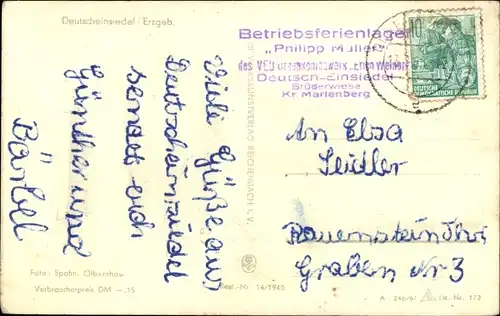 Deutscheinsiedel / Erzgeb.
Betriebsferienlager
"Philipp Müller"
des VEB Braunkohlwerk "Erich Weinert"
Deutsch-Einsiedel
Brüderwiese
Kr. Marienberg
10
5
DEUTSCHE
DEMOKRATISCHE REPUBLIK
Viele Grüße aus
Deutscheinsiedel
sendet euch
Günther und
Bärbel
An Elsa
Seidler
Rauenstein Thür
Graben Nr 3
KUNSTVERLAG REICHENBACH I. V.
Foto: Spahn, Olbernhau
Verbraucherpreis DM —.15
Best.-Nr. 14/1940
Nr. 172